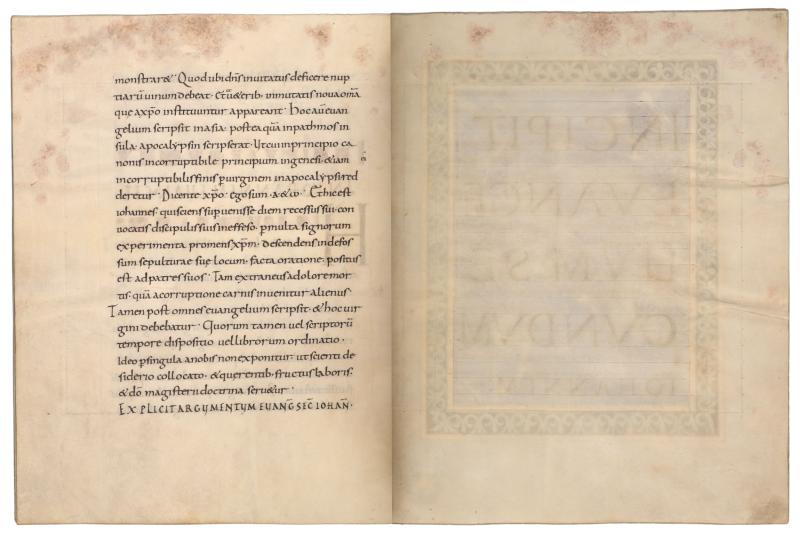 monstrar& Quod ubi dñs inuitatus deficere nup
tiarū uinum debeat. Et ū&erib. inmutatis noua omã
que axp̄o instituuntur appareant. Hoc aū euan
gelium scripsit in asia. postea quā inpathmos in
sula. apocalypsin scripserat. Ut cui inprincipio ca
nonis incorruptibile principium ingenesi. &iam
incorruptibilis finis p uirginem in apocalypsi red
deretur. Dicente xp̄o. ego sum .a.&ω. Et hic est
iohannes. qui sciens supuenisse diem recessus sui. con
uocatis discipulis suis in effeso. p multa signorum
experimenta promens xp̄m. descendens in defos
sum sepulturae suę locum. facta oratione. positus
est ad patres suos. Tam extraneus a dolore mor
tis. quā a corruptione carnis inuenitur alienus.
Tamen post omnes euangelium scripsit. & hoc uir
gini debebatur. Quorum tamen uel scriptorū
tempore dispositio uel librorum ordinatio.
Ideo p singula a nobis non exponitur. ut scienti de
siderio collocato. & querentib. fructus laboris.
& dō magisterii doctrina seru&ur.
EXPLICIT ARGUMENTUM EUANG̃ SEC̃ IOHAÑ.
INCIPIT
EUANGE
LIU SE
CVNDVM
IOHANNEM